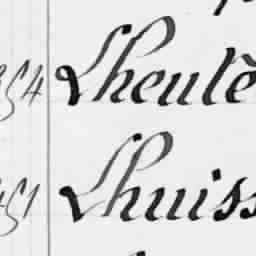 54 Lheulè
51 Lhuiss